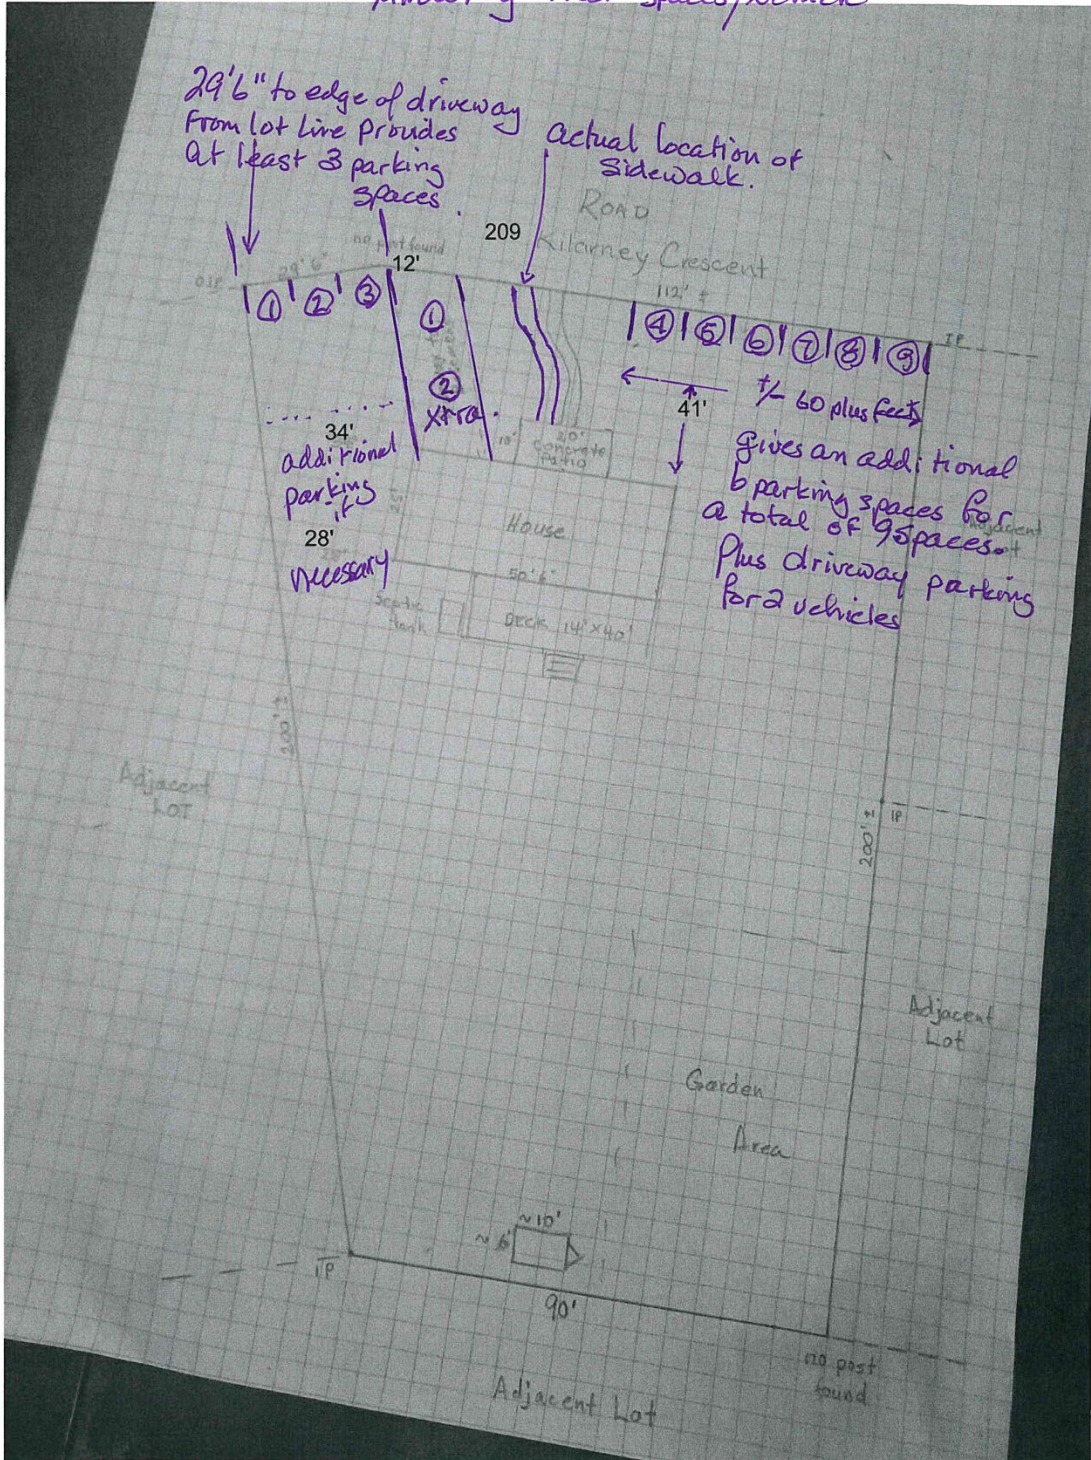 29'6" to edge of driveway
From lot Line Provides
at least 3 parking
spaces.
actual location of
sidewalk.
ROAD
209
Kilarney Crescent
no post found
12'
29' 6"
112' ±
IP
① ② ③
①
②
xtra.
④ ⑤ ⑥ ⑦ ⑧ ⑨
+/- 60 plus feet
41'
gives an additional
6 parking spaces for
a total of 9 spaces.
Plus driveway parking
for 2 vehicles
34'
additional
parking
if
28'
necessary
10'
20'
Concrete
Patio
House
50' 6"
Septic
tank
DECK 14' X 40'
Adjacent
200' ±
Adjacent
LOT
IP
200' ±
Adjacent
Lot
Garden
Area
~10'
~6'
IP
90'
no post
found
Adjacent Lot